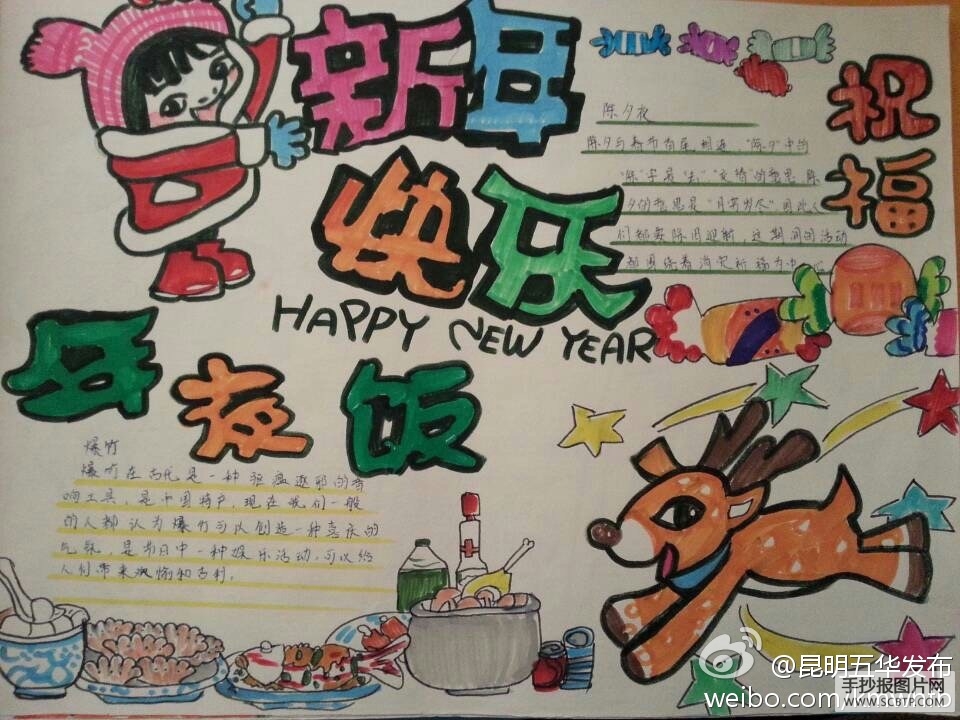 新年
快乐
HAPPY NEW YEAR
祝
福
除夕夜
除夕与春节首尾相连，"除夕"中的
"除"字是"去"，"交替"的意思，除
夕的意思是"月穷岁尽"，因此人
们都要除旧迎新，这期间的活动
都围绕着消灾祈福为中心
年夜饭
爆竹
爆竹在古代是一种驱瘟逐邪的音
响工具，是中国特产，现在我们一般
的人都认为爆竹可以创造一种喜庆的
气氛，是节日中一种娱乐活动，可以给
人们带来欢愉和吉利。
@昆明五华发布
weibo.com/kmwhfb
手抄报图片网
WWW.SCBTP.COM